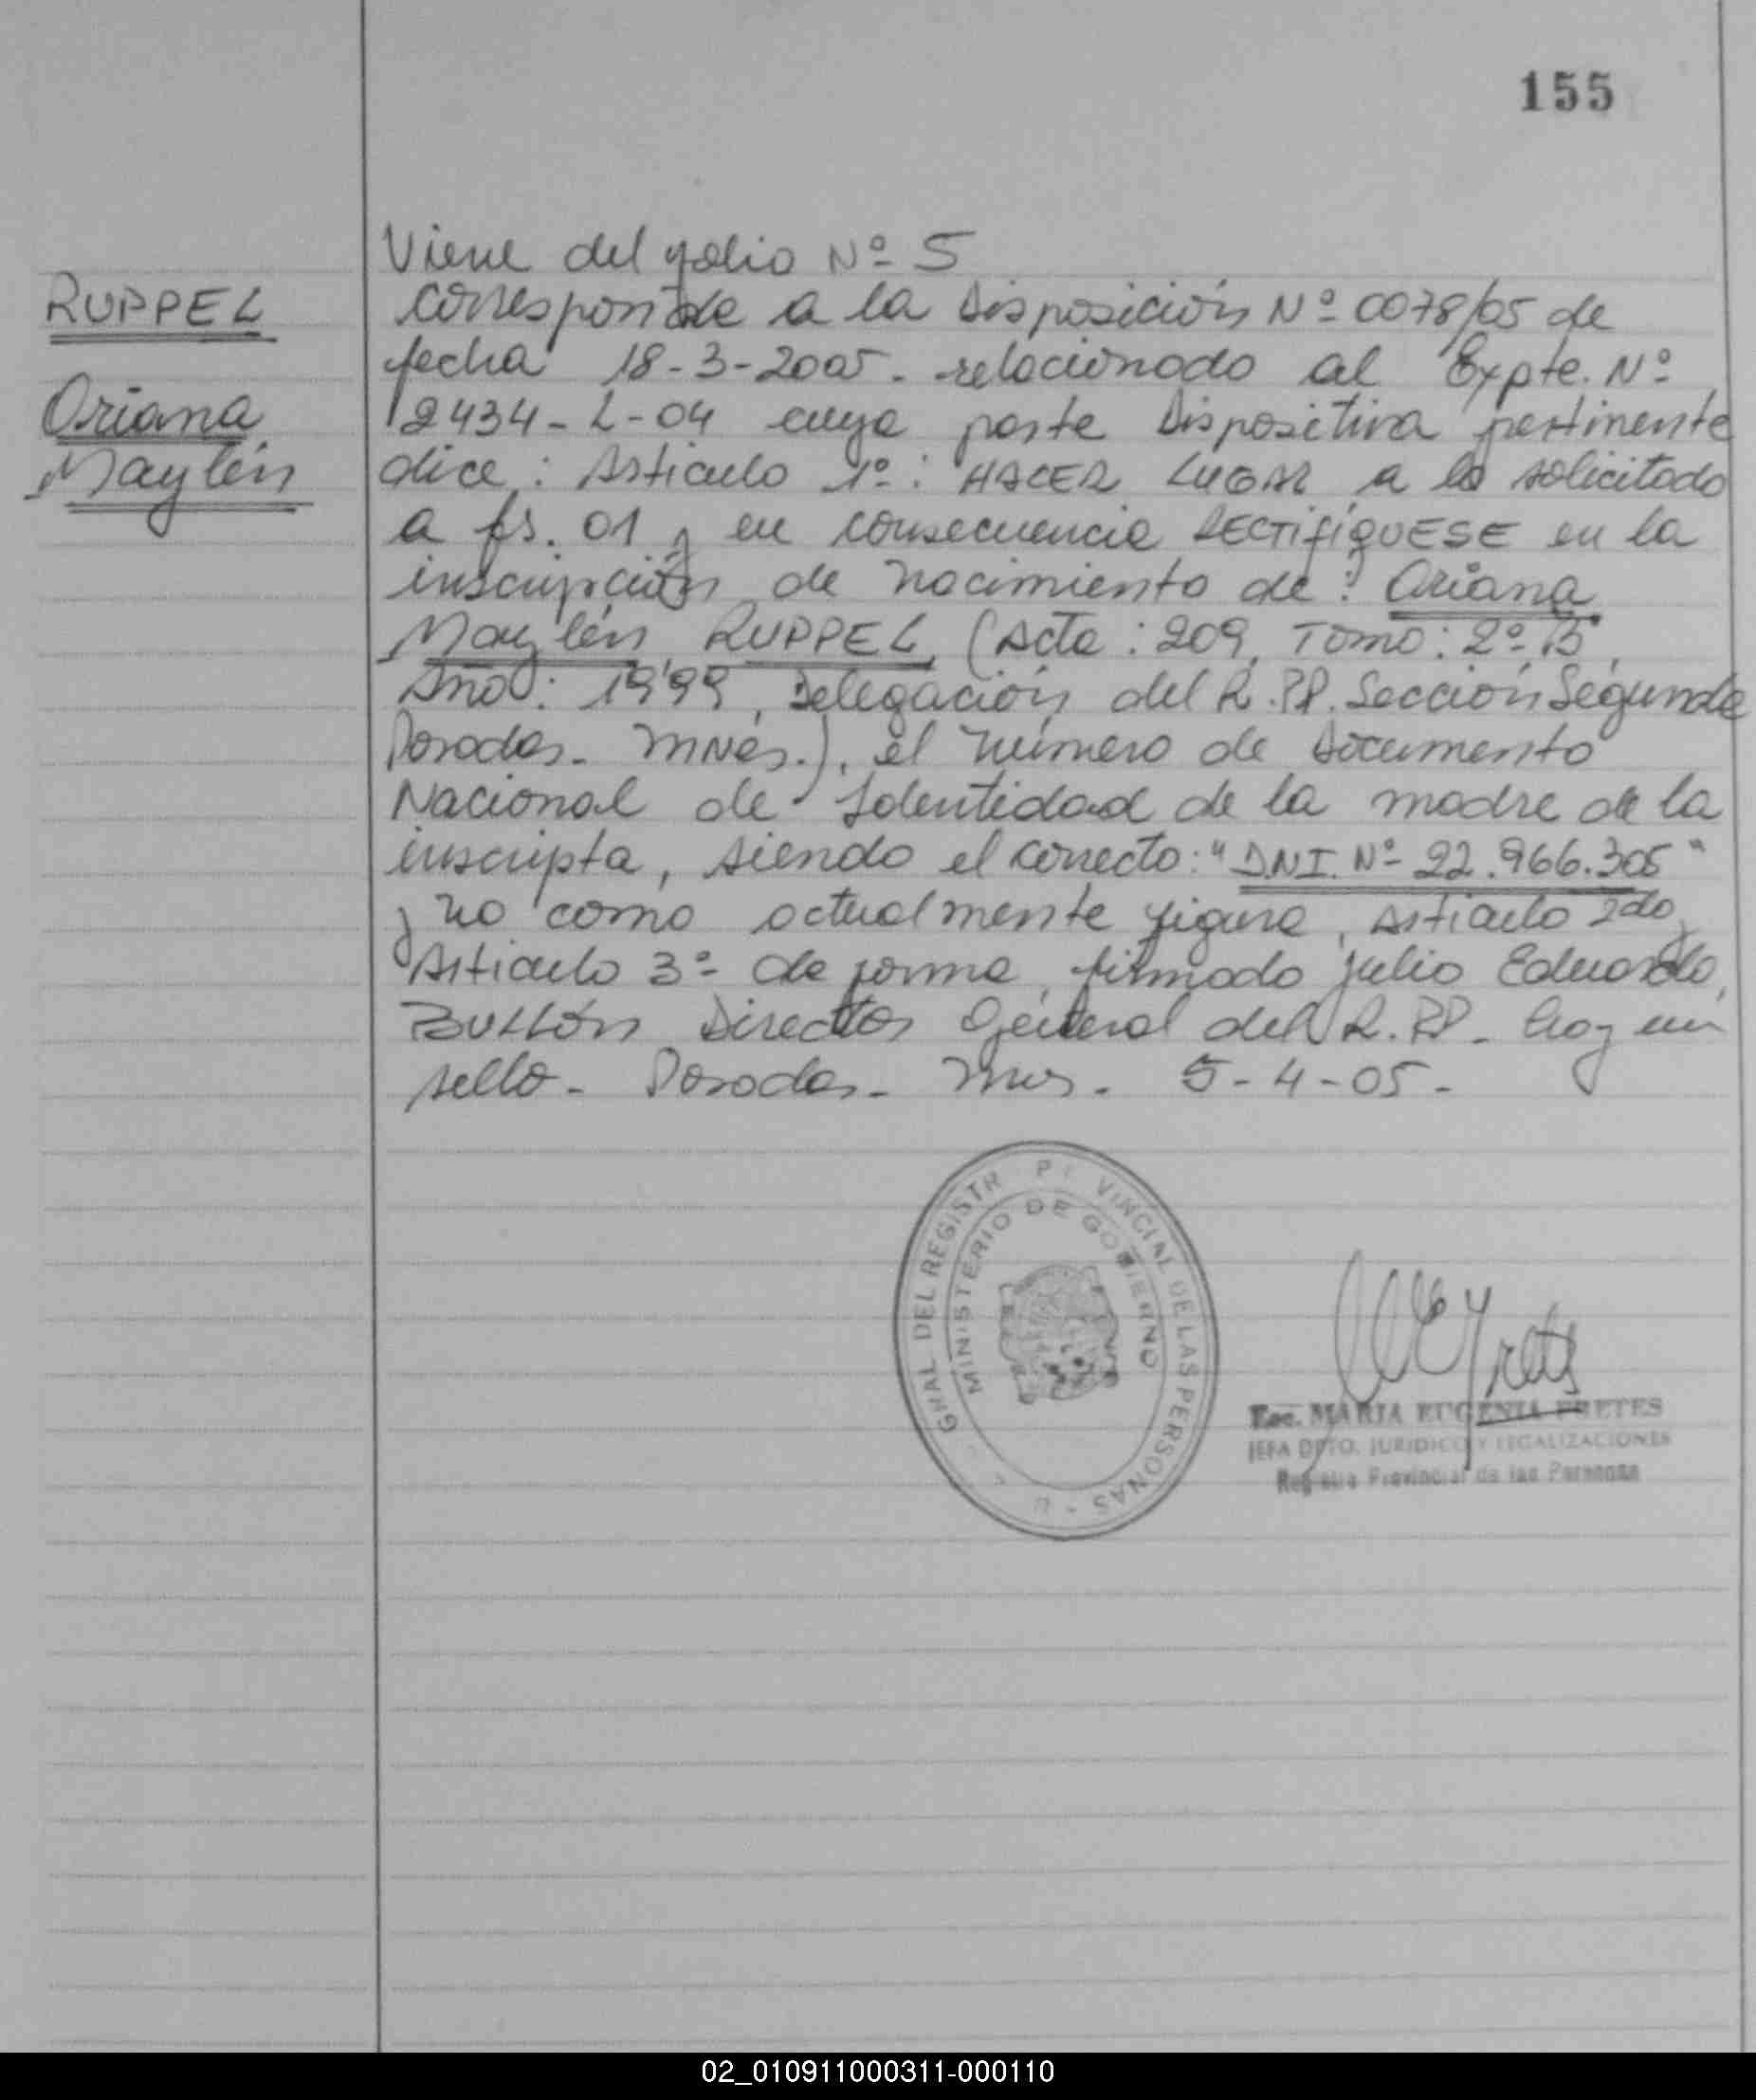 155
RUPPEL
Oriana
Maylén
Viene del folio Nº 5
corresponde a la Disposición Nº 0078/05 de
fecha 18-3-2005. relacionado al Expte. Nº
2434-L-04 cuya parte Dispositiva pertinente
dice: Articulo 1º: HACER LUGAR a lo solicitado
a fs. 01 y en consecuencia RECTIFÍQUESE en la
inscripción de nacimiento de: Oriana
Maylén RUPPEL (Acta: 209, Tomo: 2º B,
Año: 1999, Delegación del R.PP. Sección Segunda
Posadas- MNes.), el número de Documento
Nacional de Identidad de la madre de la
inscripta, siendo el correcto: "D.N.I. Nº 22.966.305"
y no como actualmente figura, Articulo 2do y
Articulo 3º de forma, firmado Julio Eduardo
BULLÓN Director General del R.PP- hay un
sello- Posadas- Mnes- 5-4-05-
GRAL DEL REGISTR P VINCIAL DE LAS PERSONAS
MINISTERIO DE GOBIERNO
MARIA EUGENIA FRETES
JEFA DPTO. JURIDICO Y LEGALIZACIONES
Registro Provincial de las Personas
02_010911000311-000110